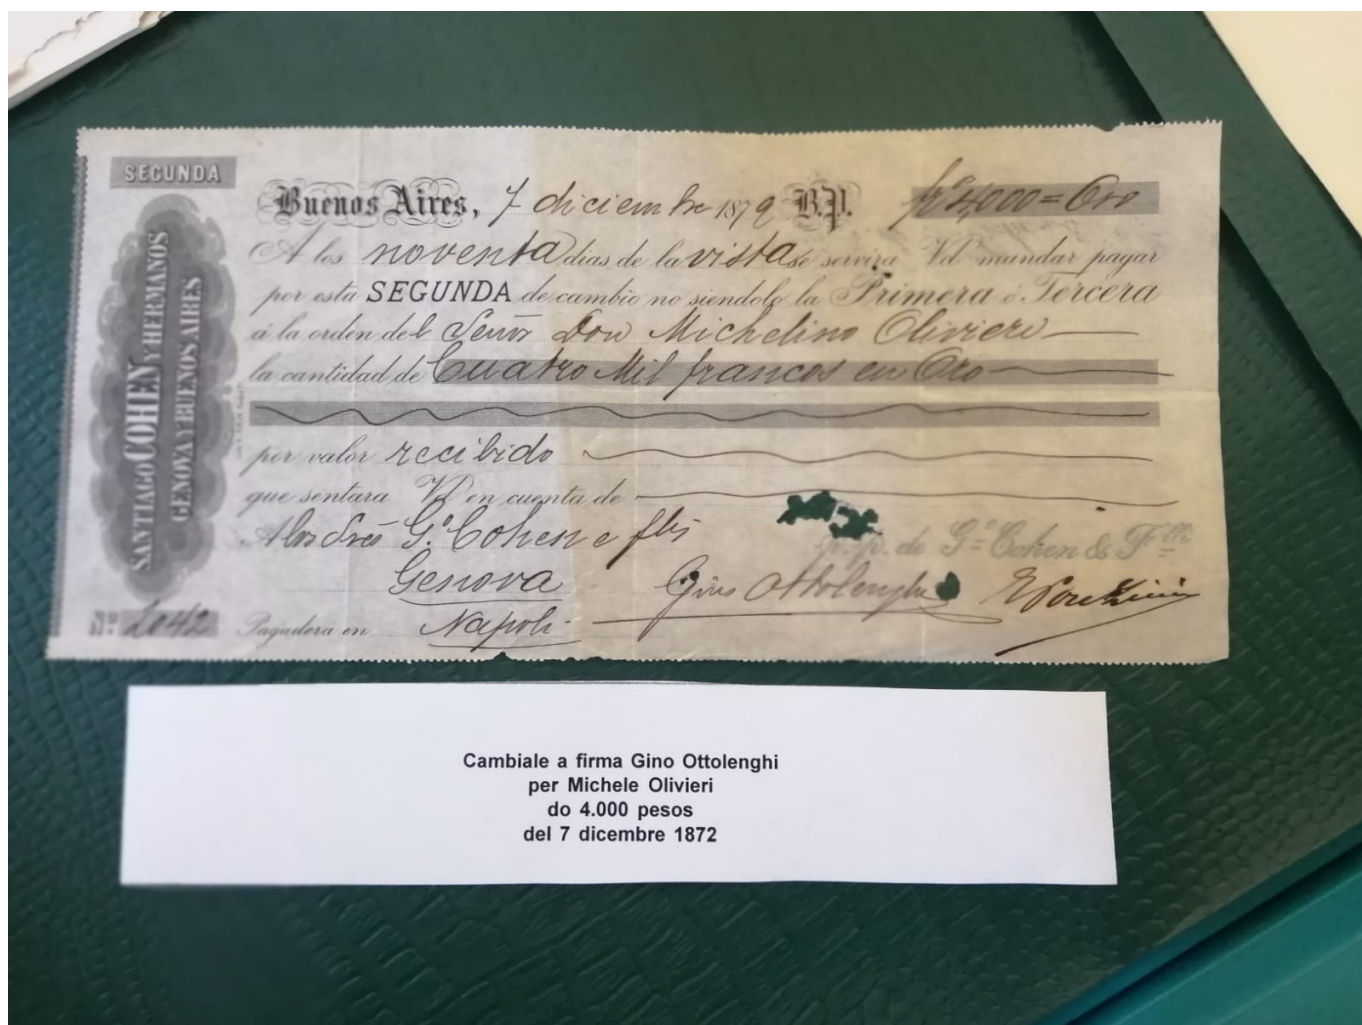 SEGUNDA
SANTIAGO COHEN Y HERMANOS
GENOVA Y BUENOS AIRES
Buenos Aires, 7 diciembre 1879 B.P. fcs 4,000 = Oro
A los noventa dias de la vista se servirá Vd mandar pagar
por esta SEGUNDA de cambio no siendolo la Primera ó Tercera
á la orden del Señor Don Michelino Olivieri
la cantidad de Cuatro Mil francos en Oro
por valor recibido
que sentara Vd en cuenta de
A los Sres Go. Cohen e flli
p.p. de Go. Cohen & Flli
Genova
Gino Ottolenghi
No 2042 Pagadera en Napoli
Cambiale a firma Gino Ottolenghi
per Michele Olivieri
do 4.000 pesos
del 7 dicembre 1872